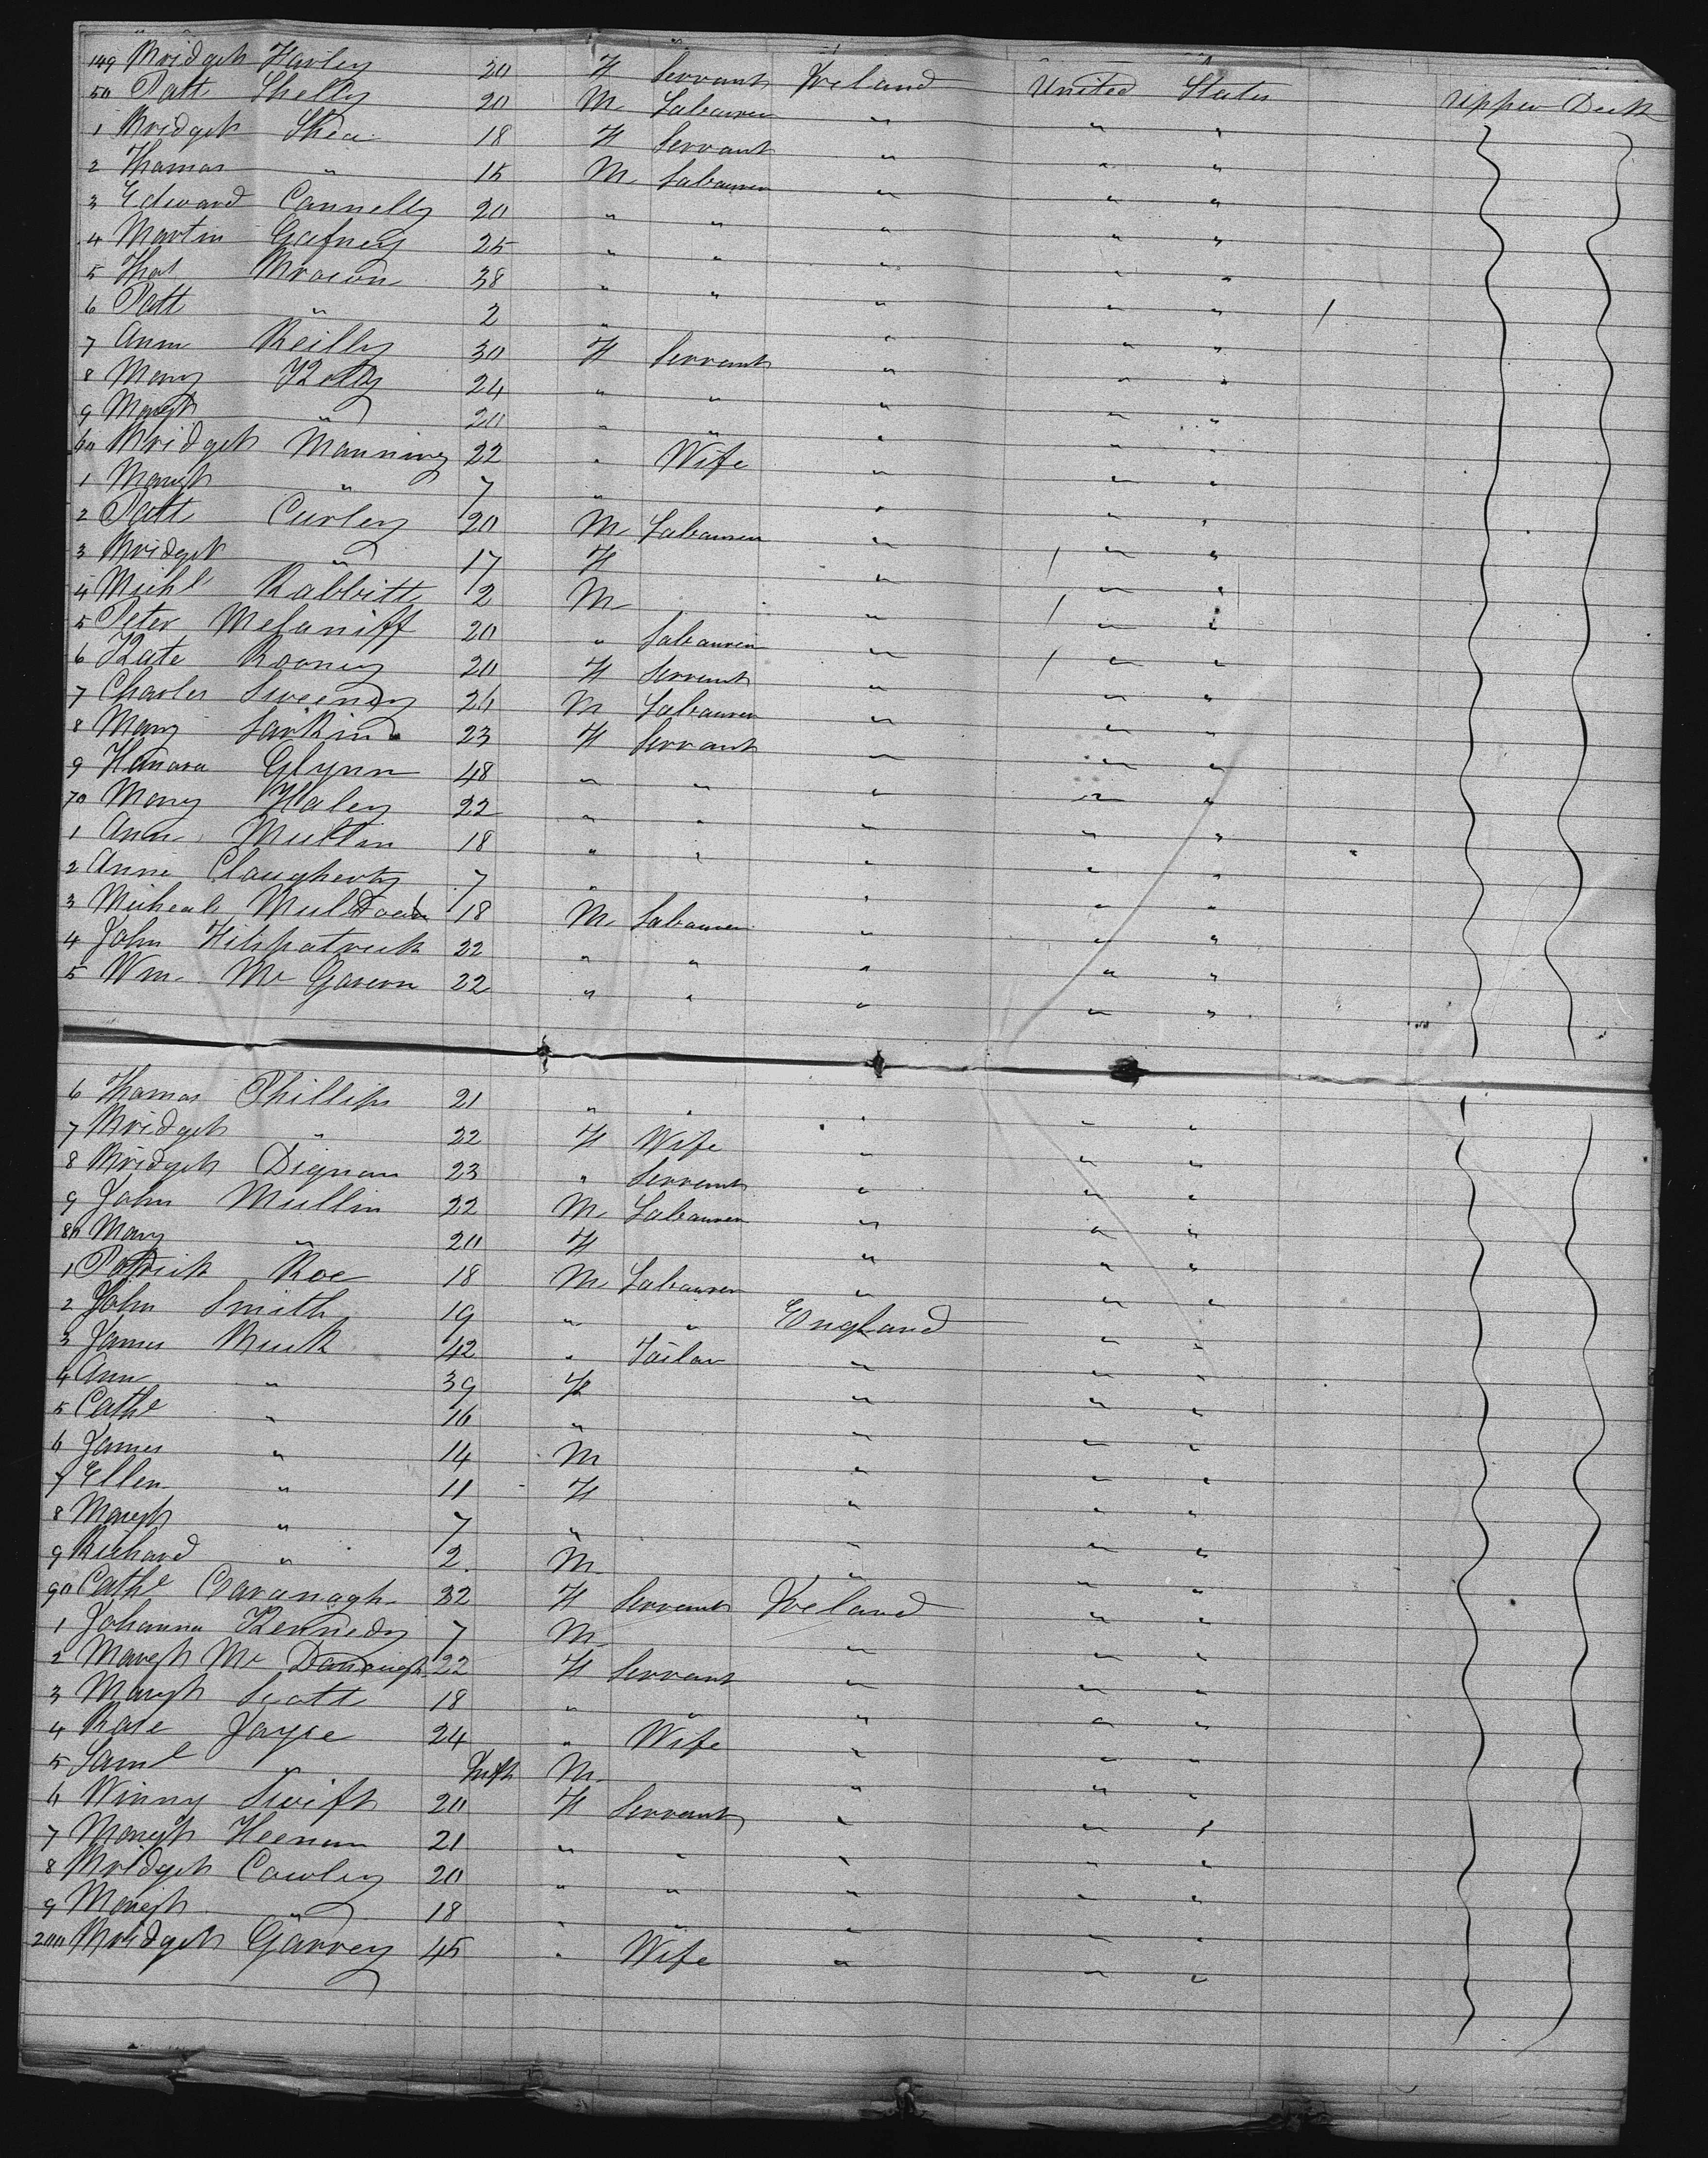 149 Bridget Harley 20 F Servant Ireland United States Upper Deck
50 Patt Shelly 20 M Labourer " " "
1 Bridget Shea 18 F Servant " " "
2 Thomas " 15 M Labourer " " "
3 Edward Connelly 20 " " " " "
4 Martin Gafney 25 " " " " "
5 Thos Brown 38 " " " " "
6 Patt " 2 " " " " /
7 Ann Reilly 30 F Servant " " "
8 Mary Kelly 24 " " " " "
9 Margt " 20 " " " " "
60 Bridget Manning 22 " Wife " " "
1 Margt " 7 " " " "
2 Patt Curley 20 M Labourer " " "
3 Bridget " 17 F " / " "
4 Michl Rabbitt 2 M " / " "
5 Peter 20 " Labourer " / " "
6 Kate Rooney 20 F Servant " " "
7 Charles Sweeney 26 M Labourer " " "
8 Mary Larkin 23 F Servant " " "
9 Hanora Glynn 48 " " " " "
70 Mary Haley 22 " " " " "
1 Ann Mullin 18 " " " " "
2 Anne Claugherty 7 " " " "
3 Micheal Muldoon 18 M Labourer " " "
4 John Kilpatrick 22 " " " " "
5 Wm Mc Gavern 22 " " " " "
6 Thomas Phillips 21 " " " " "
7 Bridget " 22 F Wife " " "
8 Bridget Dignan 23 " Servant " " "
9 John Mullin 22 M Labourer " " "
80 Mary " 20 F " " "
1 Patrick Roe 18 M Labourer " " "
2 John Smith 19 " " England " "
3 James 42 " Tailor " " "
4 Ann " 39 F " " "
5 Cathe " 16 " " " "
6 James " 14 M " " "
7 Ellen " 11 F " " "
8 Margt " 7 " " " "
9 Richard " 2 M " " "
90 Cathe Cavanagh 32 F Servant Ireland " "
1 Johanna Kennedy 7 M " " "
2 Margt Mc Donough 22 F Servant " " "
3 Margt Scott 18 " " " " "
4 Rose Joyce 24 " Wife " " "
5 Saml " Inft M " " "
6 Winny Swift 20 F Servant " " "
7 Margt Heenan 21 " " " " "
8 Bridget Cowley 20 " " " " "
9 Margt " 18 " " " " "
200 Bridget Garvey 45 " Wife " " "